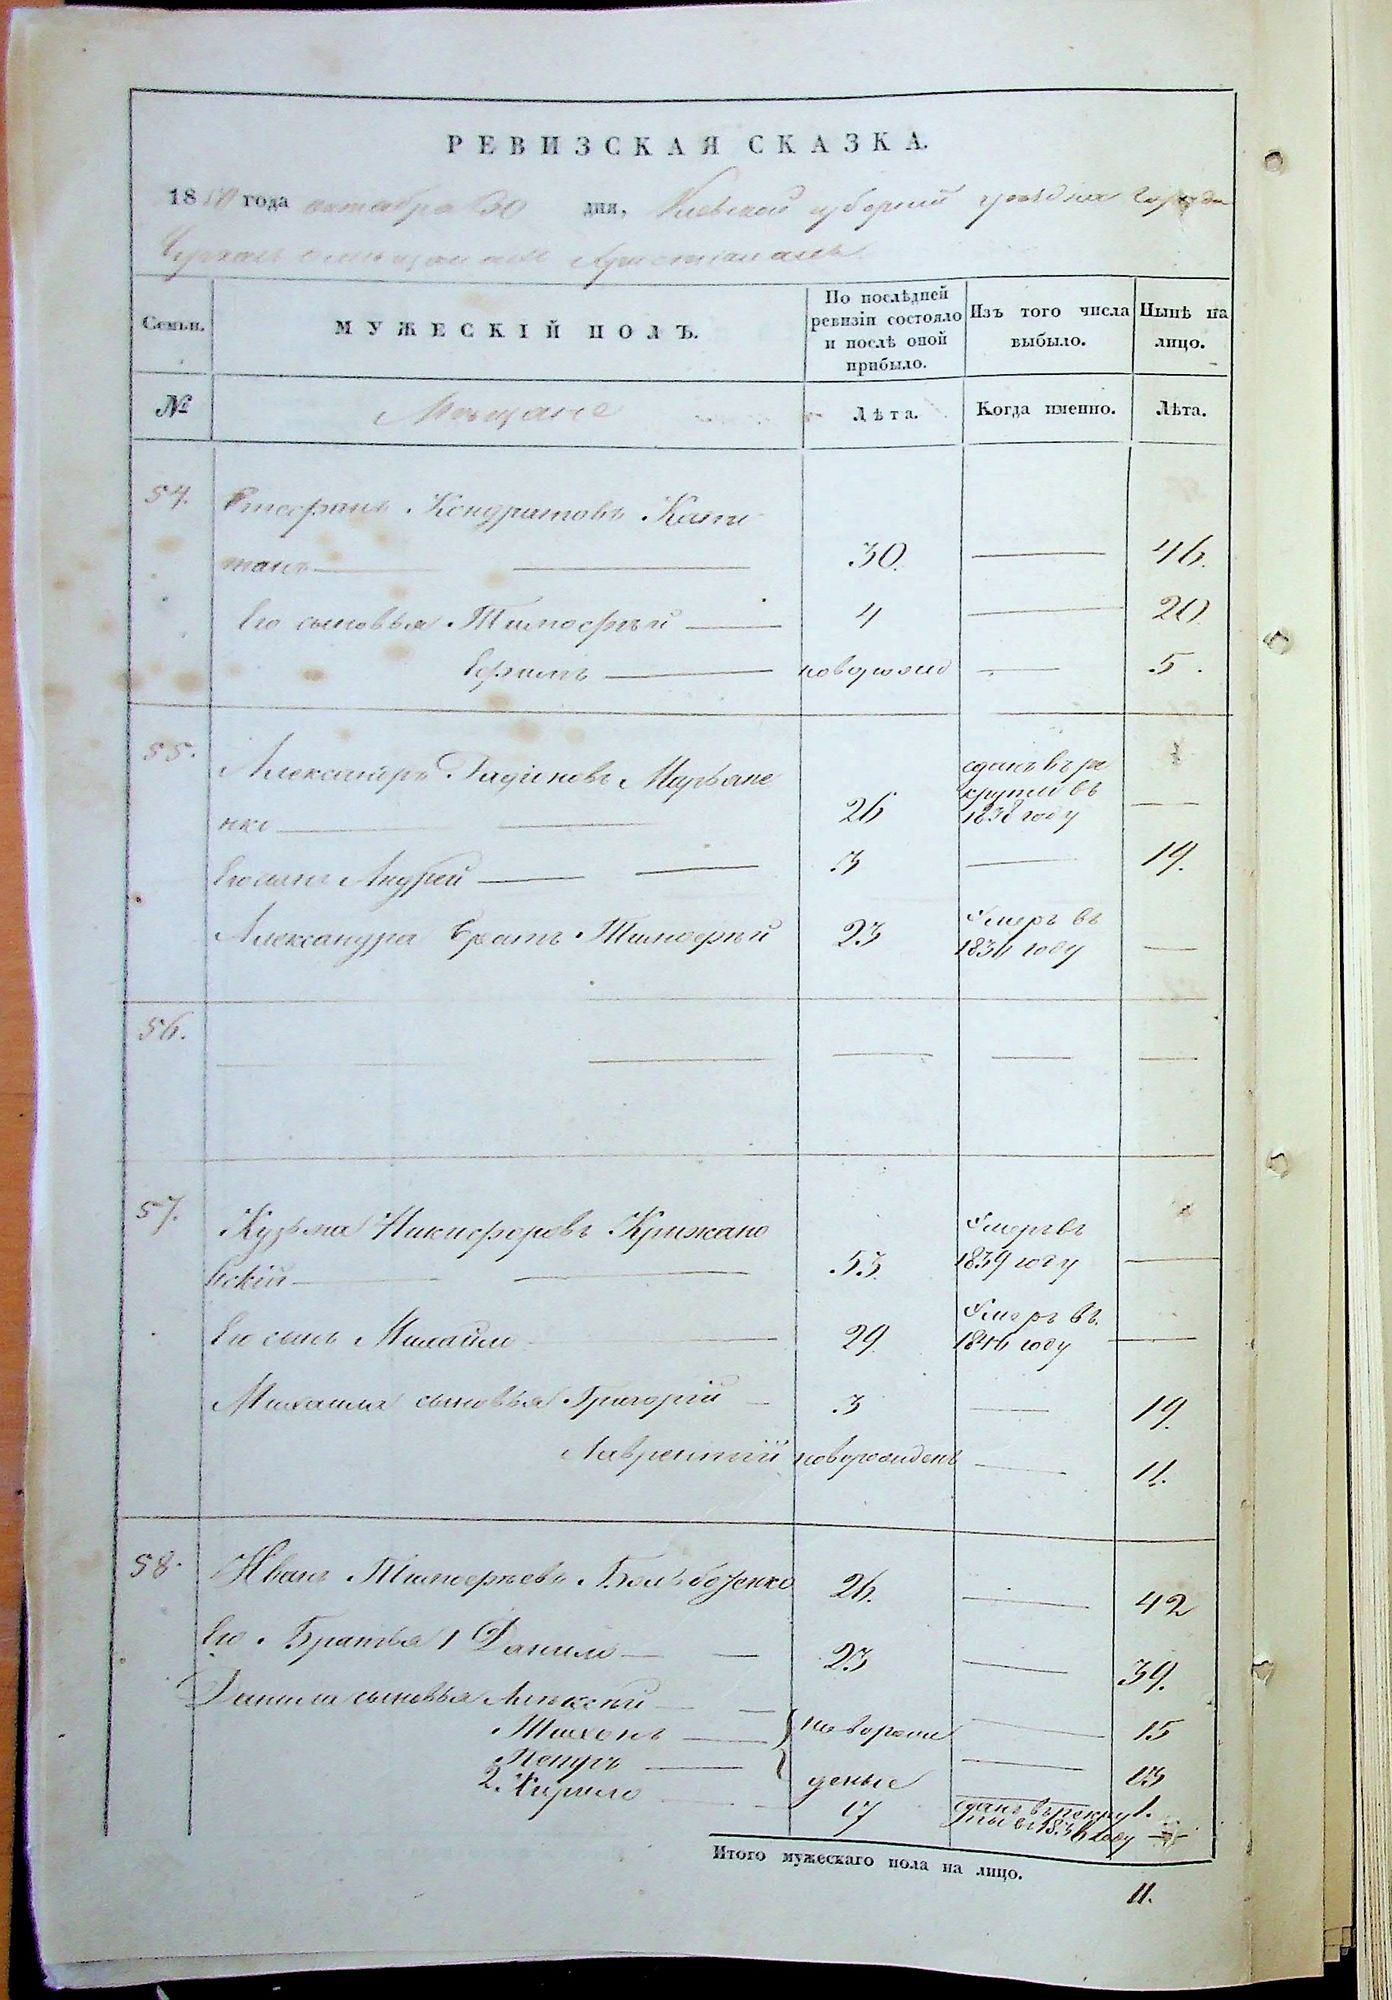 РЕВИЗСКАЯ СКАЗКА.
1850 года октября 30 дня, Киевской губернии уезднаго города
о мещанам христианам
Семьи.
МУЖЕСКІЙ ПОЛЪ.
По послѣдней ревизіи состояло и послѣ оной прибыло.
Изъ того числа выбыло.
Нынѣ на лицо.
№
Мещане
Лѣта.
Когда именно.
Лѣта.
54. Стефанъ Кондратовъ Капи
танъ 30. 46.
Его сыновья Тимофѣй 4 20
Ефимъ новорожд 5.
55. Александръ Марьяне
нко 26 сданъ въ ре
круты въ
1838 году
Его сынъ Андрей 3 19.
Александра братъ Тимофѣй 23 Умеръ въ
1836 году
56.
57. Кузьма Никифоровъ Крижано
вскій 53 Умеръ въ
1839 году
Его сынъ Михайло 29 Умеръ въ
1846 году
Михаила сыновья Григорій 3 19.
Лаврентій новорожденъ 11.
58. Иванъ Тимофѣевъ 26. 42
Его Братья 1 Данило 23 39.
Данила сыновья Алексѣй 15
Тихонъ новорож 13
Петръ денные 1.
2. Кирило 17 сданъ въ рекру
ты въ 1836 году
Итого мужескаго пола на лицо.
11.